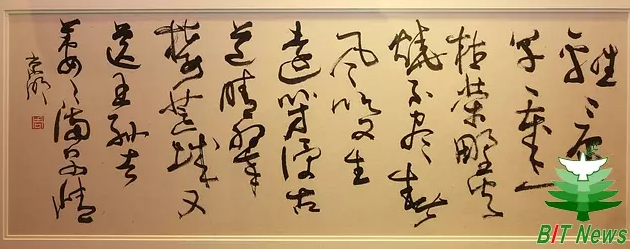 離々原
草一歲一
枯榮野火
燒不盡春
風吹又生
遠芳侵古
道晴翠
接荒城又
送王孫去
萋々滿別情
BIT News